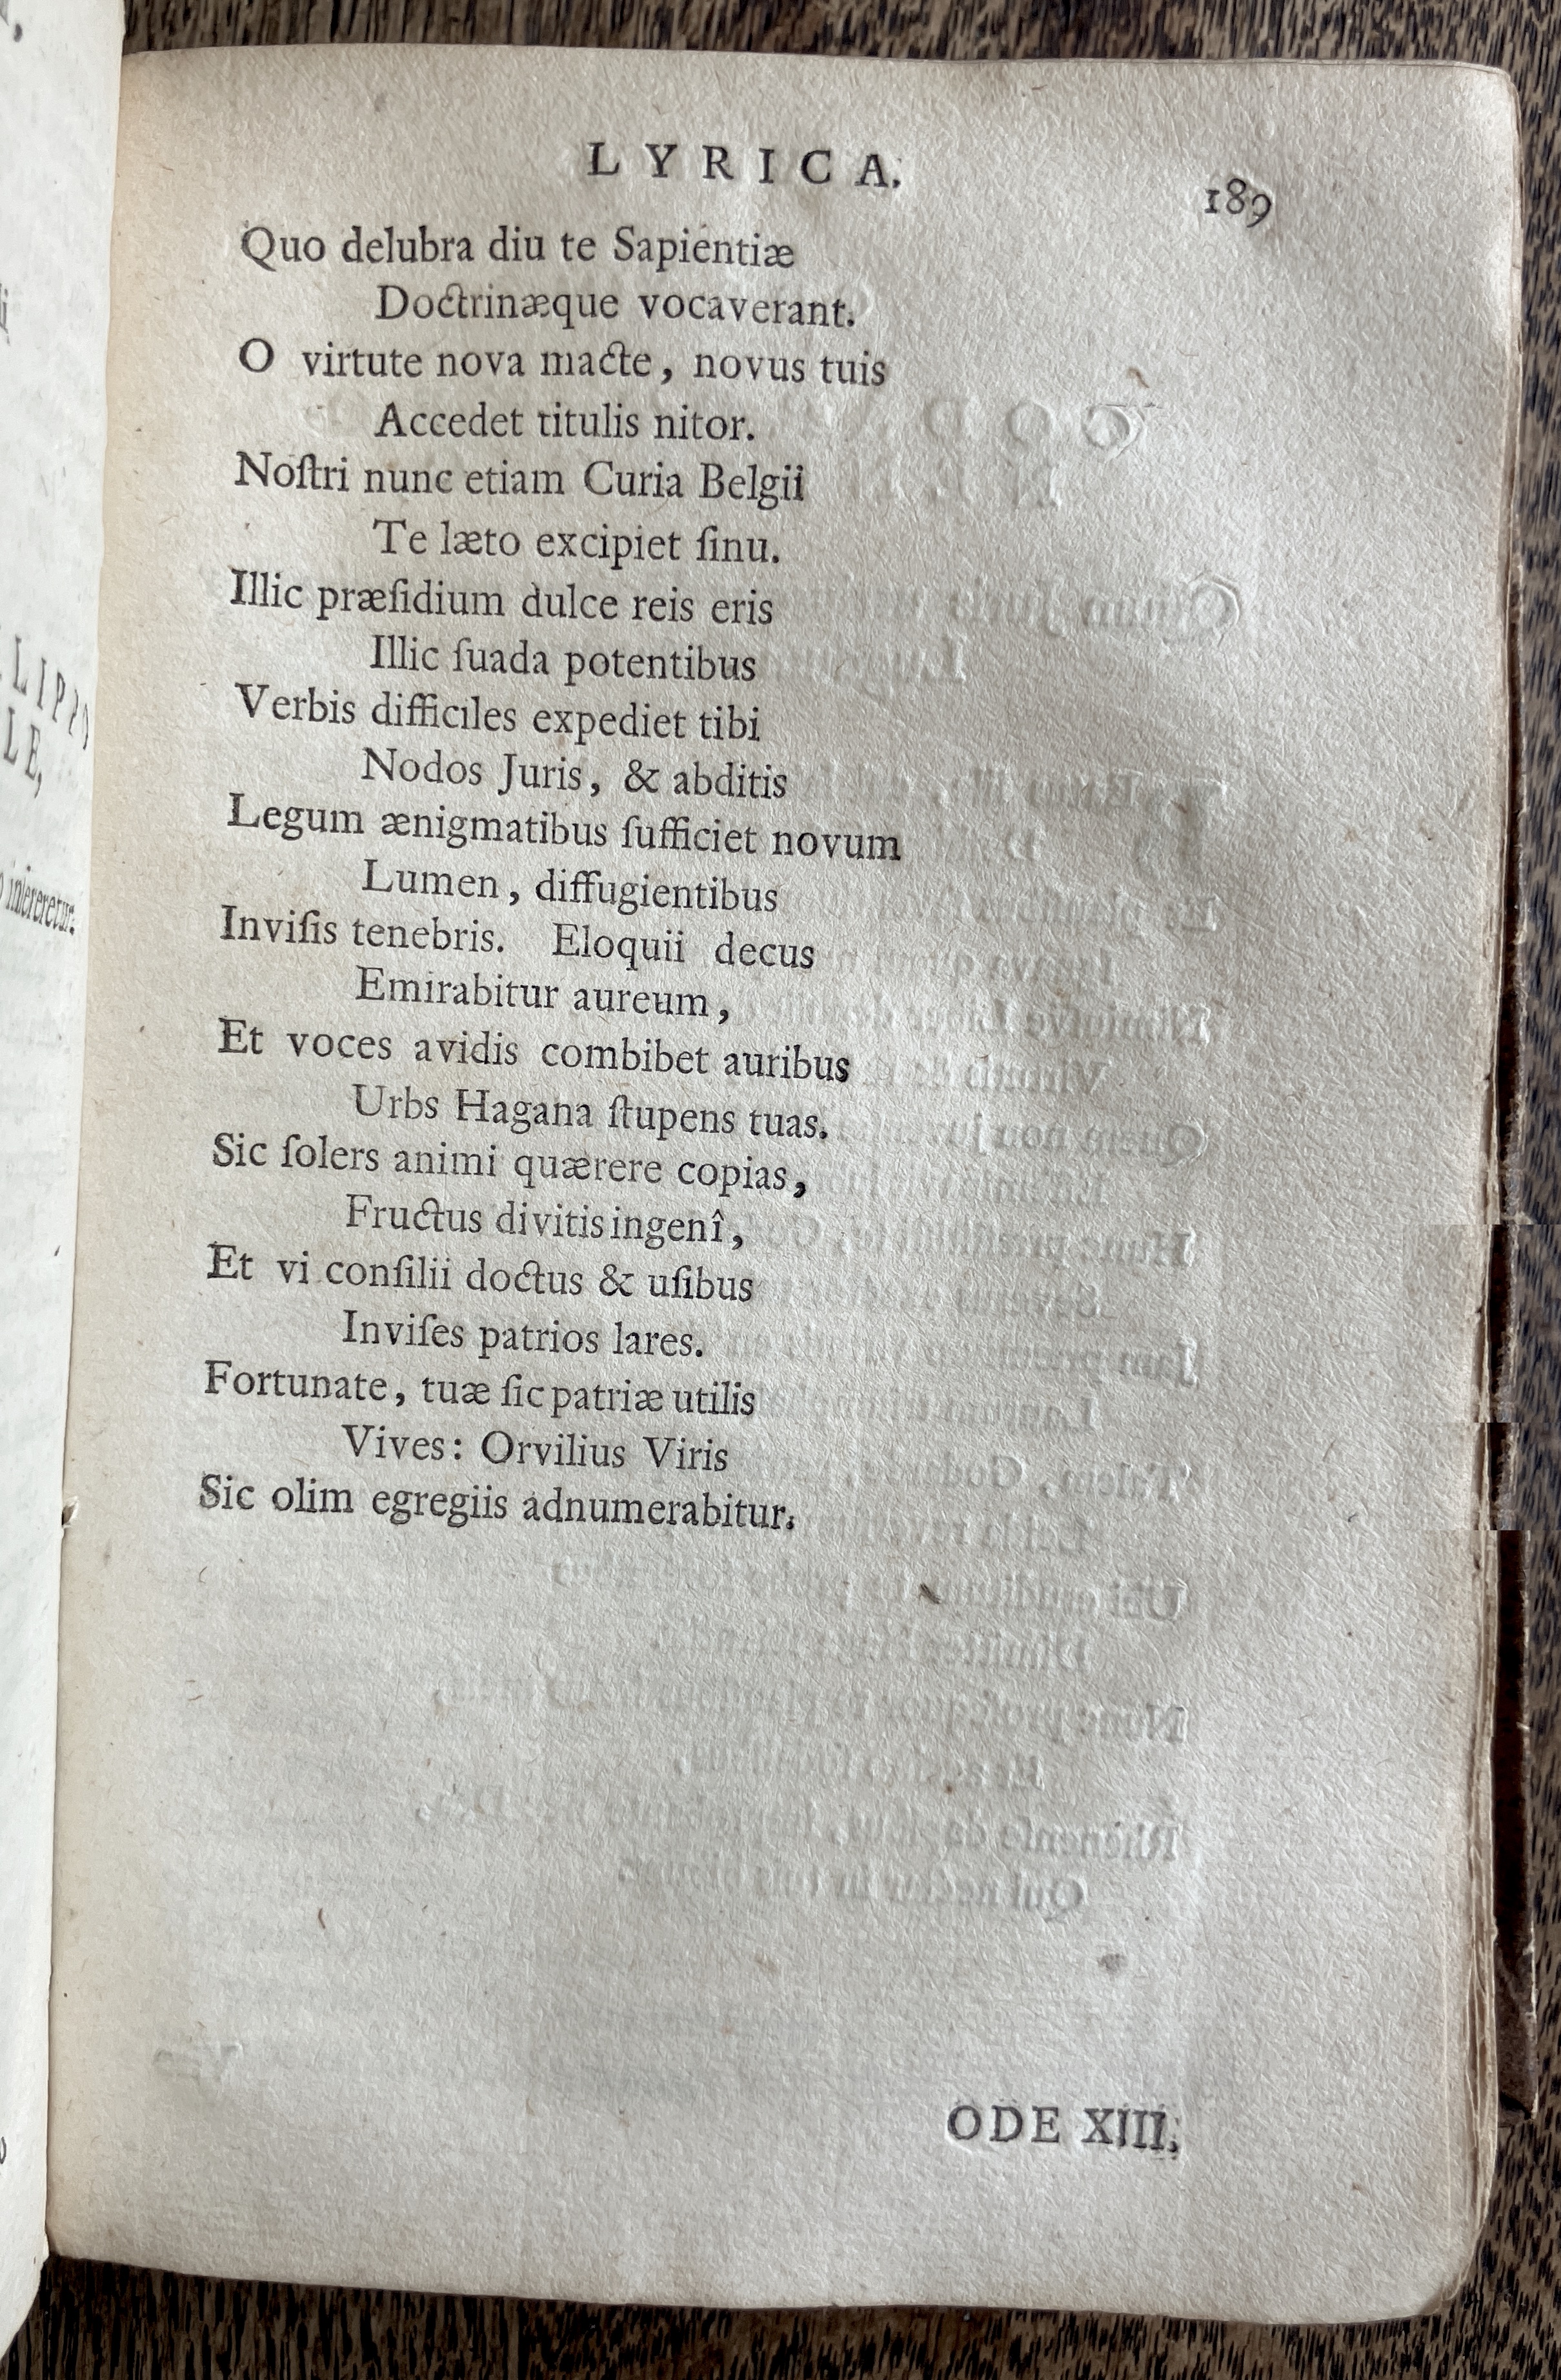 LYRICA.
189
Quo delubra diu te Sapientiæ
Doctrinæque vocaverant.
O virtute nova macte, novus tuis
Accedet titulis nitor.
Noſtri nunc etiam Curia Belgii
Te læto excipiet ſinu.
Illic præſidium dulce reis eris
Illic ſuada potentibus
Verbis difficiles expediet tibi
Nodos Juris, & abditis
Legum ænigmatibus ſufficiet novum
Lumen, diffugientibus
Inviſis tenebris. Eloquii decus
Emirabitur aureum,
Et voces avidis combibet auribus
Urbs Hagana ſtupens tuas.
Sic ſolers animi quærere copias,
Fructus divitis ingenî,
Et vi conſilii doctus & uſibus
Inviſes patrios lares.
Fortunate, tuæ ſic patriæ utilis
Vives: Orvilius Viris
Sic olim egregiis adnumerabitur.
ODE XIII.